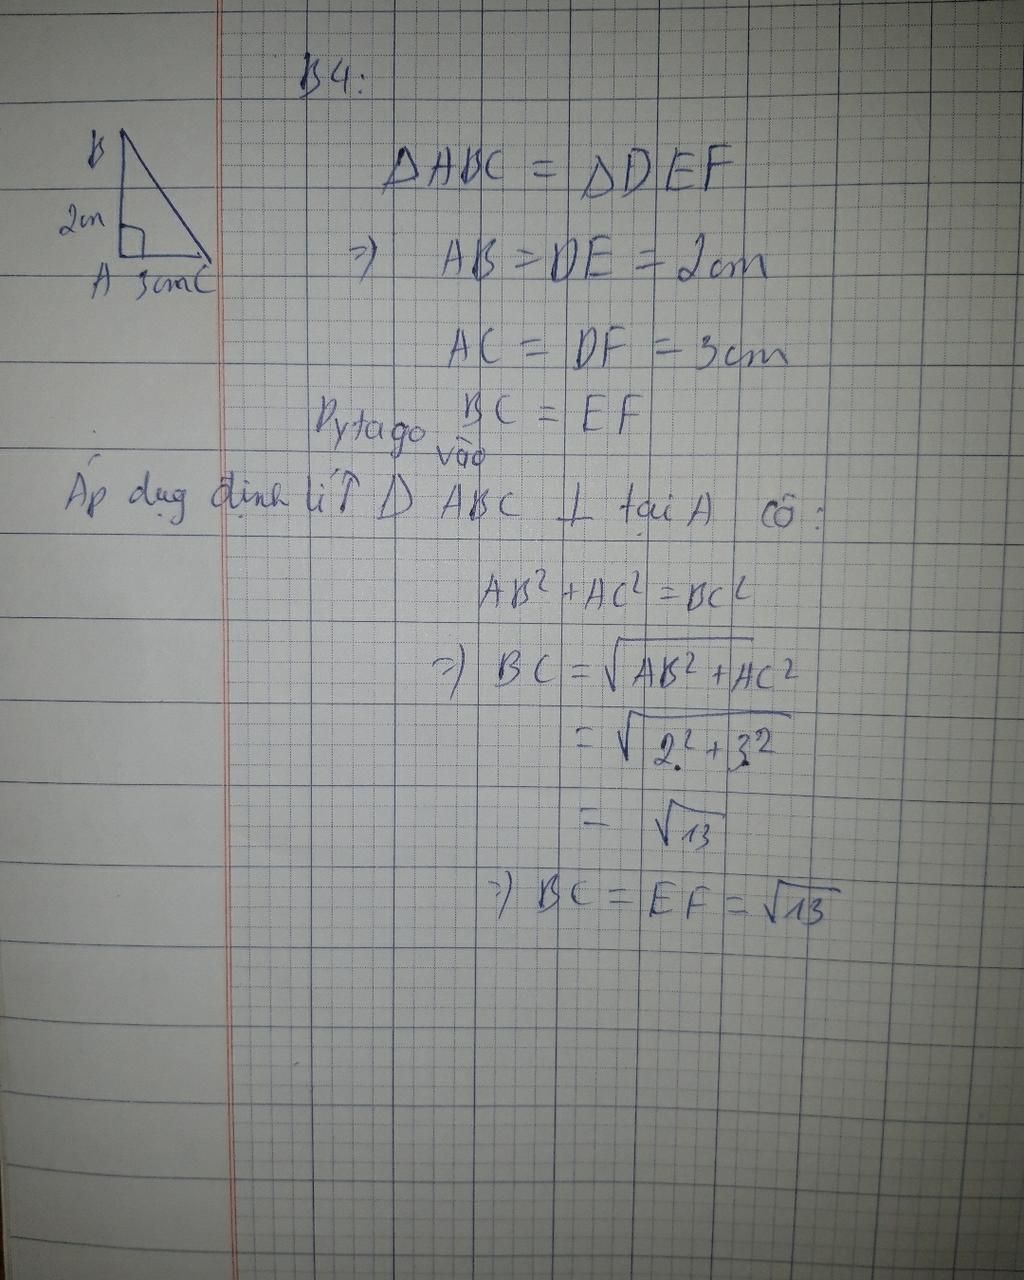 B4:
B
2cm
A 3cm C
ΔABC = ΔDEF
=> AB = DE = 2cm
AC = DF = 3cm
BC = EF
Pytago vào
Áp dụg định lí ↑ Δ ABC ⊥ tại A có:
AB² + AC² = BC²
=> BC = √AB² + AC²
= √2² + 3²
= √13
=> BC = EF = √13